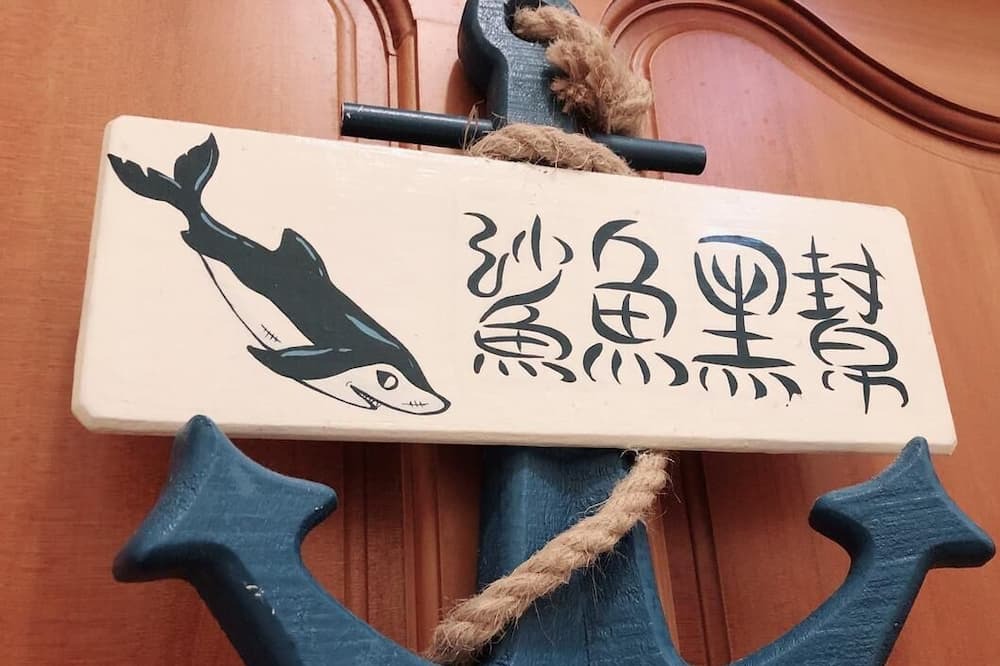 鯊魚黑幫